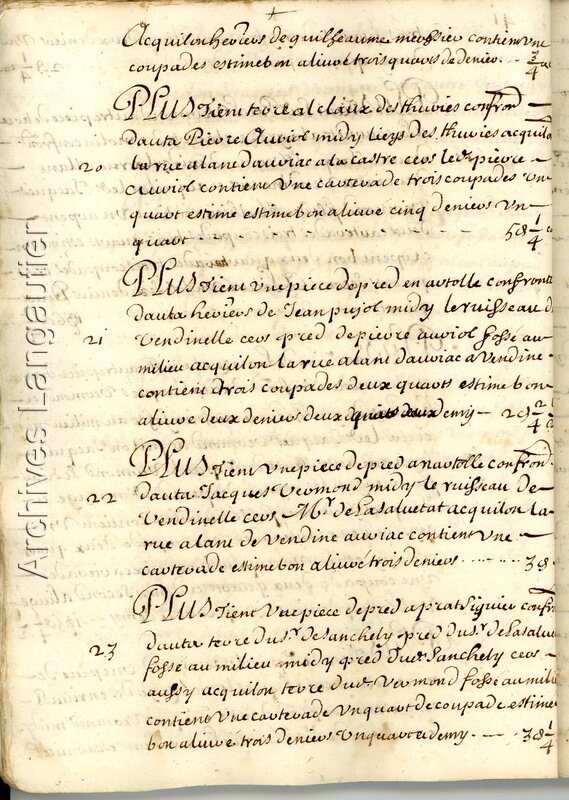 Acquilon heoirs de guilheaume meossier contient vne
coupades estime bon aliuré trois quarts de denier 3/4
PLUS Tient terre al claux des thuvies confron
dauta Pierre Auriol midy lieys des thuvies acquilo
20 la rue alant dauriac a la castre cers led. pierre
auriol contient Vne carterade trois coupades vn
quart estime estime bon aliure cinq deniers Vn
quart 5d 1/4
PLUS Tient vne piece de pred en autolle confronte
dauta heoirs de Jean pujol midy le ruisseau d
21 Vendinelle cers pred de pierre auriol fossé au
milieu acquilon la rue alant dauriac a Vendine
contient trois coupades deux quarts estime bon
aliure deux deniers deux demy 2d 2/4
PLUS Tient Vne piece de pred a nautolle confron
22 dauta Jacques Vermond midy le ruisseau de
Vendinelle cers Mr. de Lasaluetat acquilon la
rue alant de Vendine auriac contient vne
carterade estime bon aliuré trois deniers 3d
PLUS Tient Vne piece de pred a prat siguier confr
23 dauta terre du sr. de sanchely pred du sr. de Lasalue
fossé au milieu midy pred dud. sanchely cers
aussy acquilon terre dud. Vermond fossé au mili
contient Vne carterade Vn quart de coupade estime
bon aliure trois deniers Vn quart et demy 3d 1/4
Archives Langautier